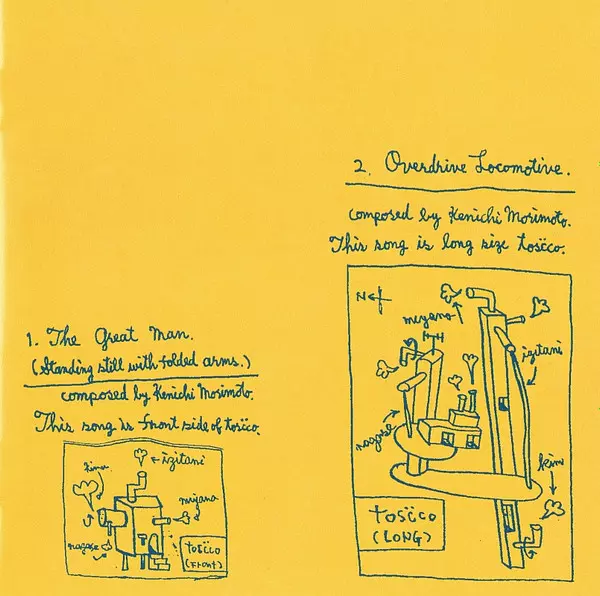 1. The Great Man.
(Standing still with folded arms.)
composed by Kenichi Morimoto.
This song is front side of toscco.
kimu
izitani
miyano
nagase
toscco
(FRONT)
2. Overdrive Locomotive.
composed by Kenichi Morimoto.
This song is long size toscco.
N
miyano
izitani
nagase
kim
toscco
(LONG)